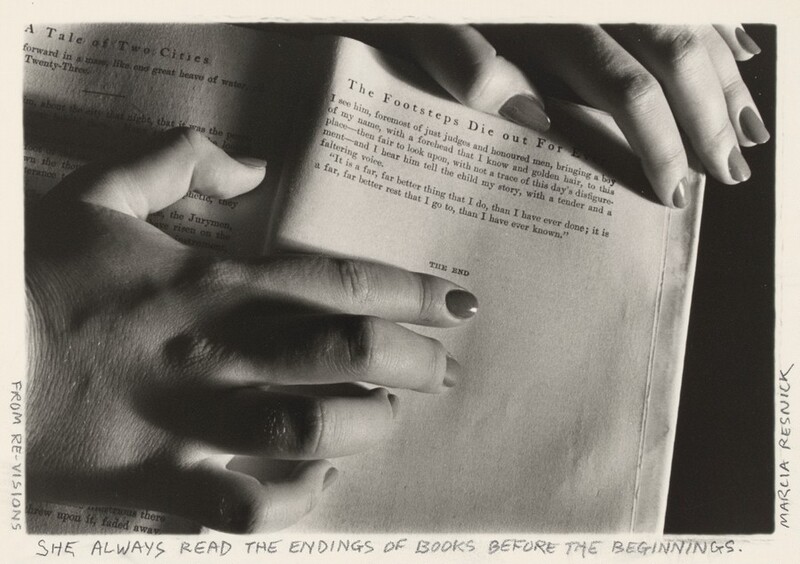 A Tale of Two Cities
forward in a mass, like one great heave of water,
Twenty-Three.
about the city that night, that it was the
they
the Jurymen,
have risen on the
there
threw upon it, faded away
The Footsteps Die out For
I see him, foremost of just judges and honoured men, bringing a boy
of my name, with a forehead that I know and golden hair, to this
place—then fair to look upon, with not a trace of this day's disfigure-
ment—and I hear him tell the child my story, with a tender and a
faltering voice.
"It is a far, far better thing that I do, than I have ever done; it is
a far, far better rest that I go to, than I have ever known."
THE END
FROM RE-VISIONS
MARCIA RESNICK
SHE ALWAYS READ THE ENDINGS OF BOOKS BEFORE THE BEGINNINGS.